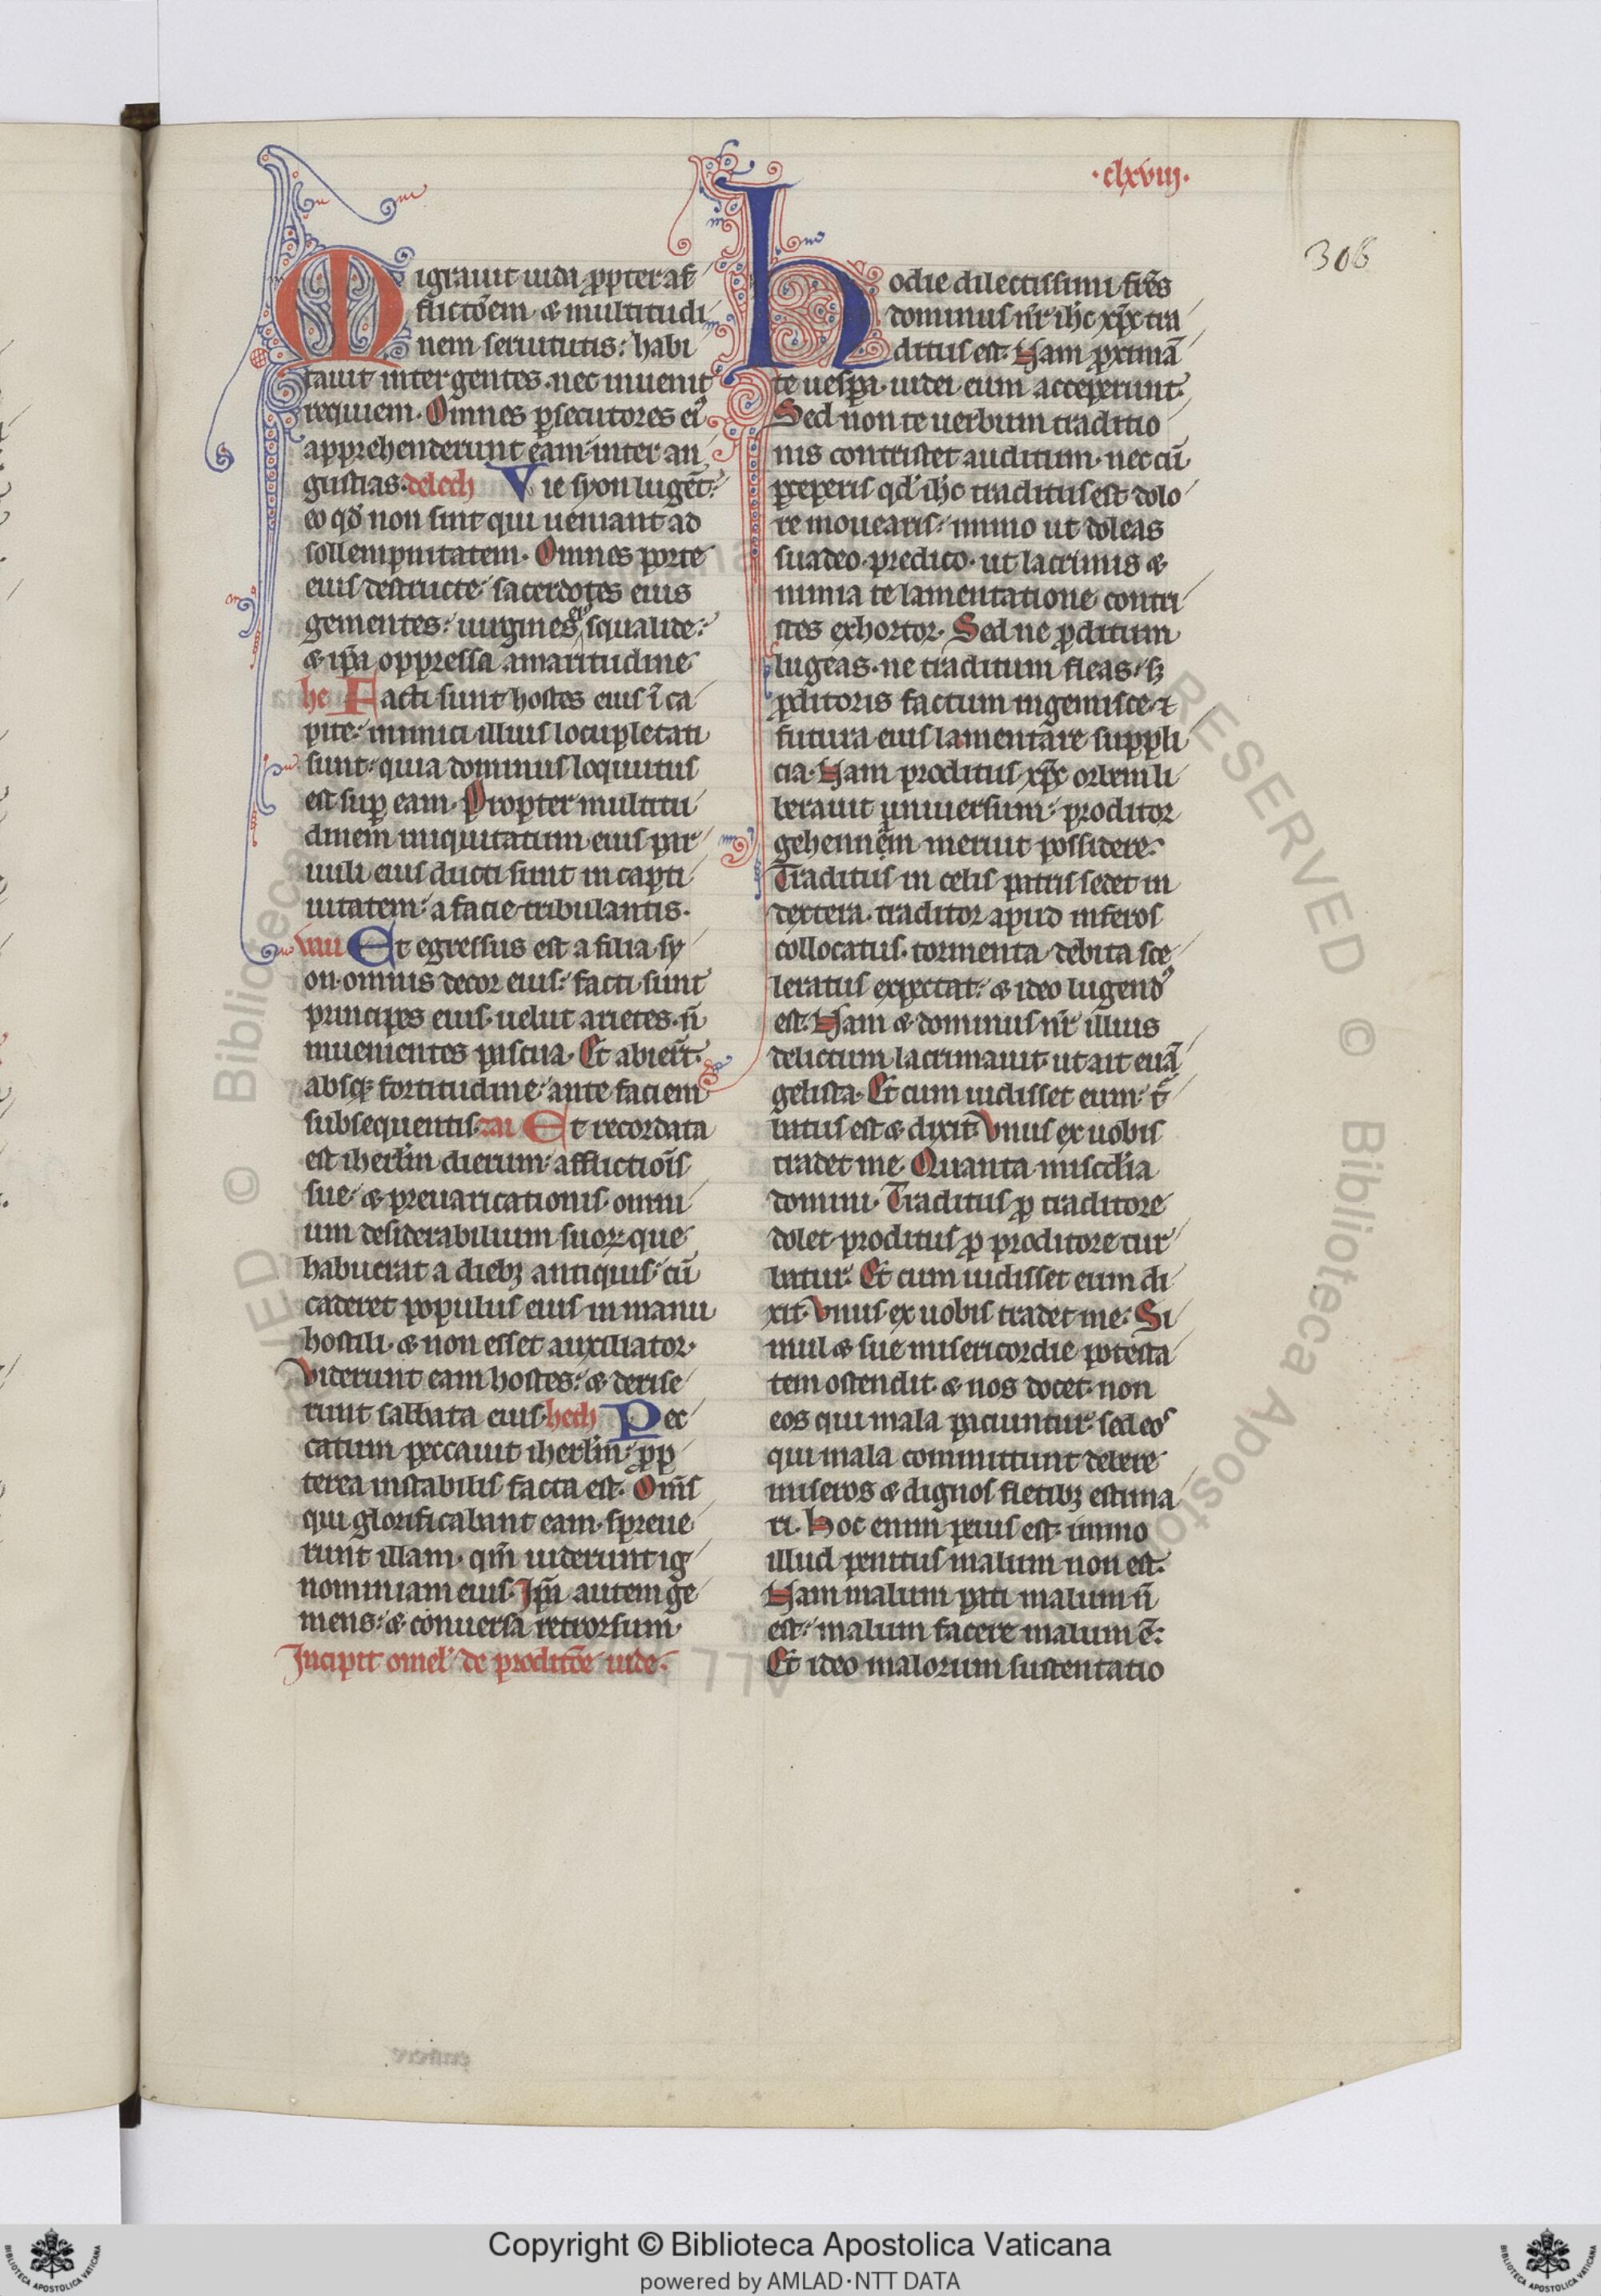 ·clxviij·
306
Migrauit iuda ꝓpter af
flictōem ⁊ multitudi
nem seruitutis: habi
tauit inter gentes. nec inuenit
requiem. Omnes ꝑsecutores ei᷒
apprehenderunt eam inter an
gustias. delech Vie syon lugēt:
eo qd̓ non sint qui ueniant ad
sollempnitatem. Omnes porte
eius destructe sacerdotes eius
gementes: uirgines ei᷒ squalide:
⁊ ip̄a oppressa amaritudine
he Facti sunt hostes eius ī ca
pite: inimici illius locupletati
sunt: quia dominus loquutus
est suꝑ eam. Propter multitu
dinem iniquitatum eius par
uuli eius ducti sunt in capti
uitatem: a facie tribulantis.
vau Et egressus est a filia sy
on omnis decor eius: facti sunt
principes eius uelut arietes. n̄
inuenientes pascua. Et abier̄t
absqꝫ fortitudine: ante faciem
subsequentis. zai Et recordata
est iherl̄m dierum: afflictiōis
sue: ⁊ preuaricationis. omni
um desiderabilium suoꝝ que
habuerat a diebꝫ antiquis: cū
caderet populus eius in manu
hostili. ⁊ non esset auxiliator.
Viderunt eam hostes: ⁊ derise
runt sabbata eius. hech Pec
catum peccauit iherl̄m: ꝓp
terea instabilis facta est. Om̄s
qui glorificabant eam. spreue
runt illam. qm̄ uiderunt ig
nominiam eius. Ip̄a autem ge
mens: ⁊ conuersa retrorsum.
Incipit omel᾽ de proditōe iude.
hodie dilectissimi fr̄es
dominus nr̄ ih̄c xp̄c tra
ditus est. Nam ꝓximā
te uesꝑa. iudei eum acceperunt.
Sed non te uerbum traditio
nis contristet auditum. nec cū
perceperis qd̓ ih̄c traditus est dolo
re mouearis: immo ut doleas
suadeo. predico. ut lacrimis ⁊
nimia te lamentatione contri
stes exhortor. Sed ne ꝓditum
lugeas. ne traditum fleas: sꝫ
ꝓditoris factum ingemisce. ⁊
futura eius lamentare suppli
cia. Nam proditus xp̄c orbem li
berauit uniuersum: proditor
gehennam meruit possidere.
Traditus in celis patris sedet in
dextera. traditor apud inferos
collocatus. tormenta debita sce
leratus expectat: ⁊ ideo lugend᷒
est. Nam ⁊ dominus nr̄ illius
delictum lacrimauit. ut ait euā
gelista. Et cum uidisset eum. t᷑
batus est ⁊ dixit. Vnus ex uobis
tradet me. Quanta miscd̄ia
domini. Traditus ꝓ traditore
dolet. proditus ꝓ proditore tur
batur. Et cum uidisset eum di
xit. Vnus ex uobis tradet me. Si
mul ⁊ sue misericordie potesta
tem ostendit. ⁊ nos docet. non
eos qui mala paciuntur. sed eos
qui mala committunt debere
miseros ⁊ dignos fletibꝫ estima
ri. Hoc enim peius est: immo
illud penitus malum non est.
Nam malum pati malum n̄
est: malum facere malum ē:
Et ideo malorum sustentatio
Copyright © Biblioteca Apostolica Vaticana
powered by AMLAD·NTT DATA